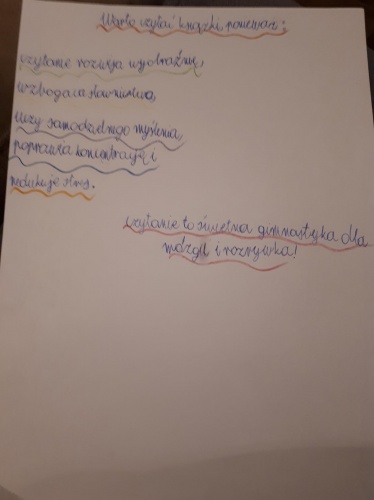 Warto czytać książki, ponieważ:
czytanie rozwija wyobraźnię,
wzbogaca słownictwo,
uczy samodzielnego myślenia,
poprawia koncentrację i
redukuje stres.
czytanie to świetna gimnastyka dla
mózgu i rozrywka!